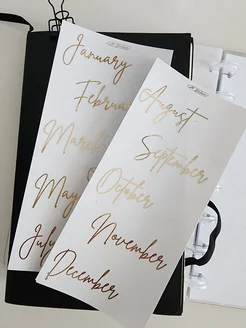 January
Februa
March
May
July
August
September
October
November
December